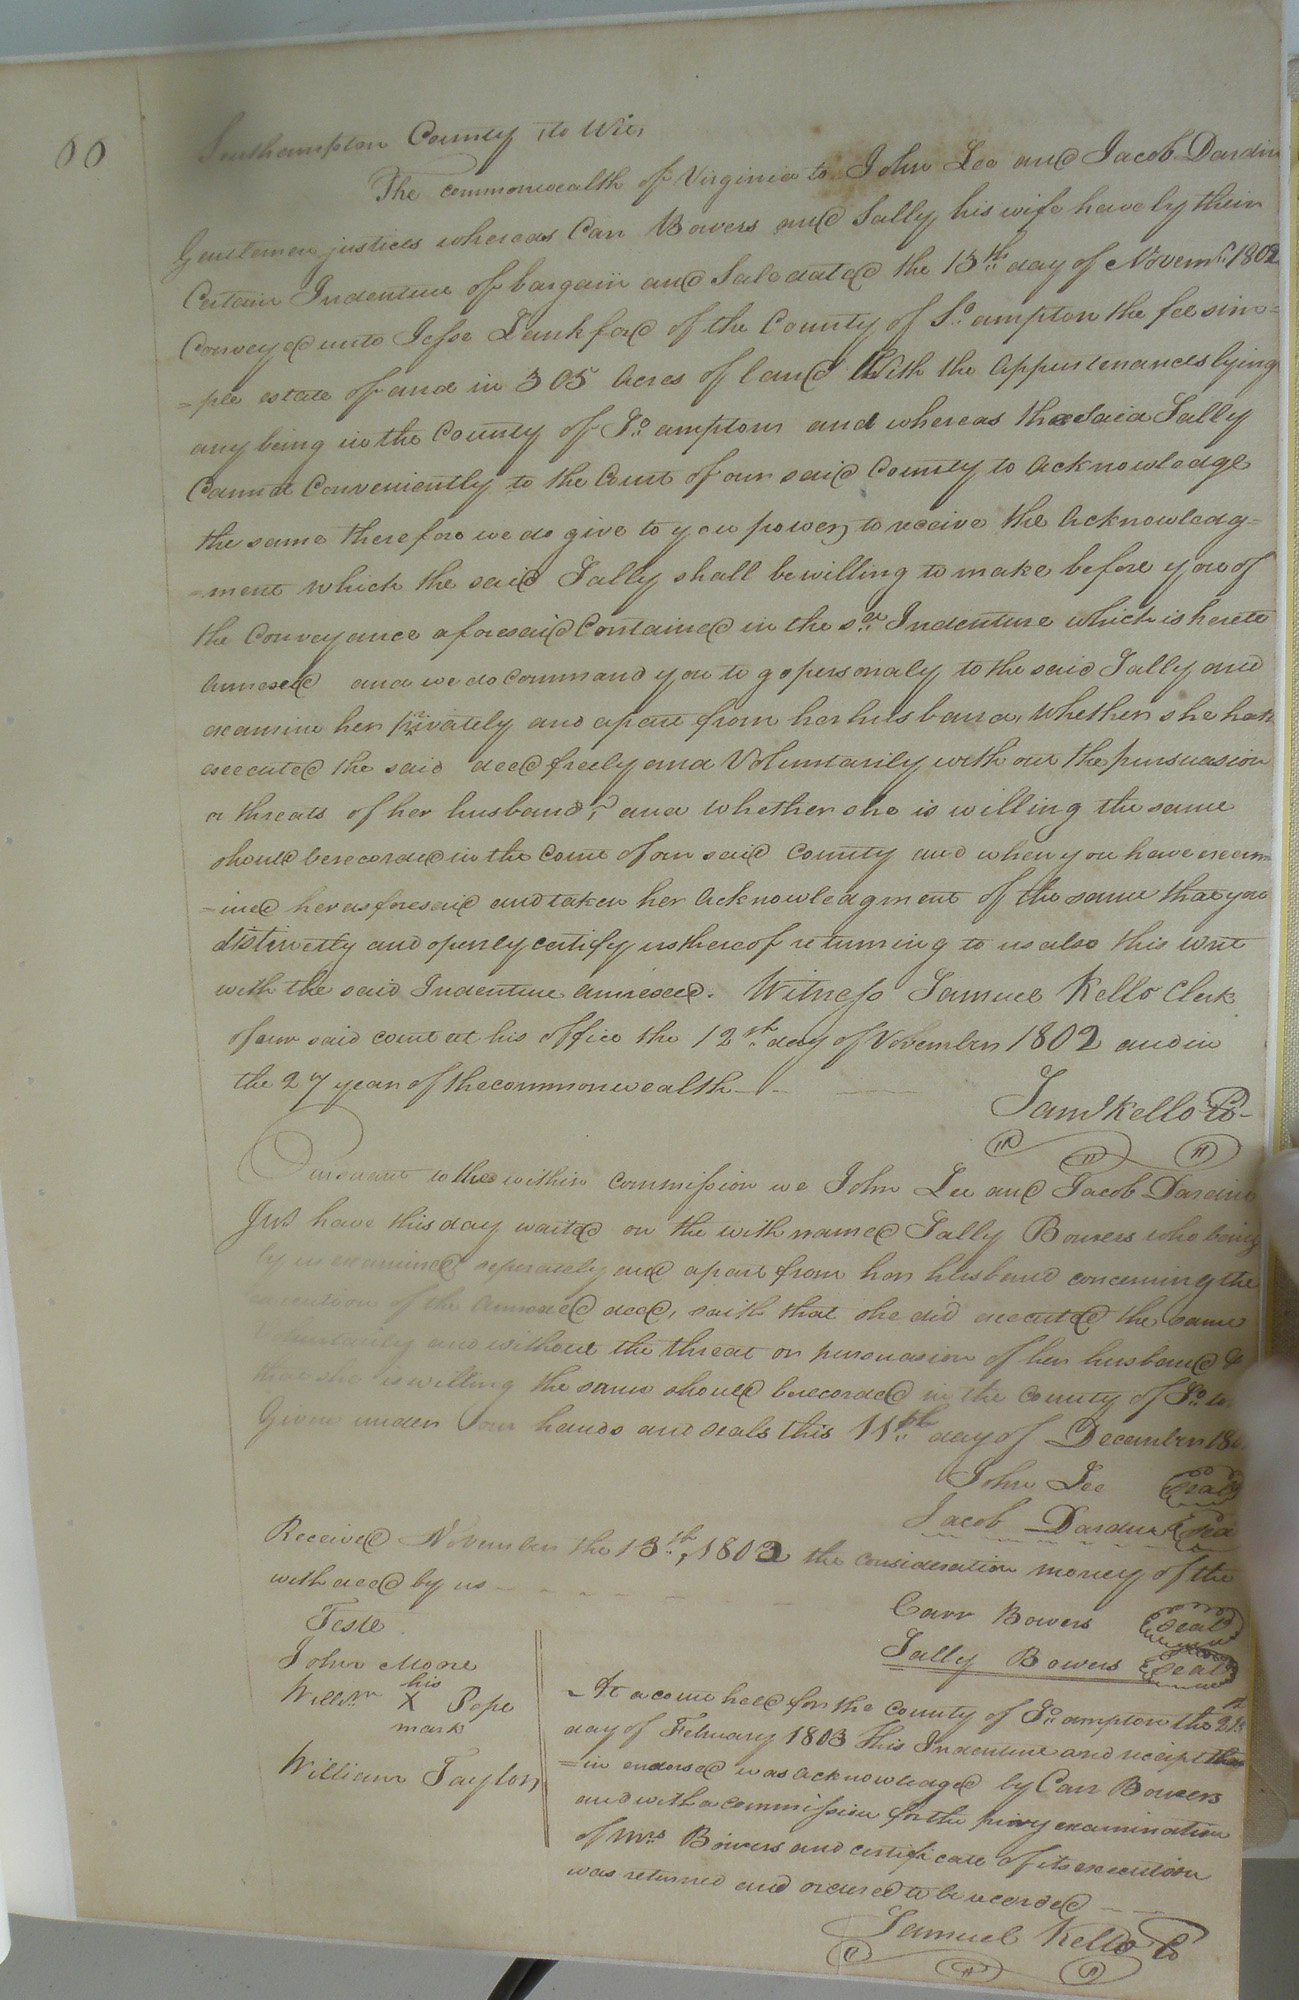 00
Southampton County to Wit,
The commonwealth of Virginia to John Lee and Jacob Dardin
Gentlemen justices whereas Carr Bowers and Sally his wife have by their
Certain Indenture of bargain and Sale dated the 13th day of Novemr. 1802
Conveyed unto Jesse Lankford of the County of So. ampton the fee sim=
=ple estate of and in 305 Acres of land With the Appurtenances lying
any being in the County of So. ampton and whereas the Said Sally
Cannot Conveniently to the Court of our said County to Acknowledge
the same therefore we do give to you power, to receive the Acknowledg=
=ment which the said Sally shall be willing to make before you of
the Conveyance aforesaid Contained in the sd. Indenture which is hereto
Annexed and we do Command you to go personaly to the said Sally and
examine her privately and apart from her husband, Whether she hath
executed the said deed freely and Voluntarily with out the pursuasion
or threats of her husband, and whether she is willing the same
should be recorded in the Court of our said County and when you have exam
=ined her as foresaid and taken her Acknowledgment of the same that you
distinctly and openly certify us thereof returning to us also this writ
with the said Indenture annexed. Witness Samuel Kello Clerk
of our said court at his office the 12th day of November 1802 and in
the 27 year of the commonwealth
Saml Kello Co
Pursuant to the within Commission we John Lee and Jacob Dardin
Just have this day waited on the with named Sally Bowers who being
by us examined seperately and apart from her husband concerning the
execution of the Annexed deed, saith that she did executed the same
voluntarily and without the threat or pursuasion of her husband &
that she is willing the same should be recorded in the County of So.
Given under our hands and seals this 11th day of December 180
John Lee Seal
Jacob Darden Sea
Received November the 13th, 1802 the consideration money of the
with deed by us
Carr Bowers Seal
Sally Bowers Seal
Teste
John Moore
his
Willm X Pope
mark
William Taylor
At a court held for the County of So. ampton the 21st
day of February 1803 This Indenture and reciept there
=in endorsed was acknowledged by Carr Bowers
and with a commission for the privy examination
of Mrs. Bowers and certificate of its execution
was returned and ordered to be recorded
Samuel Kello Co